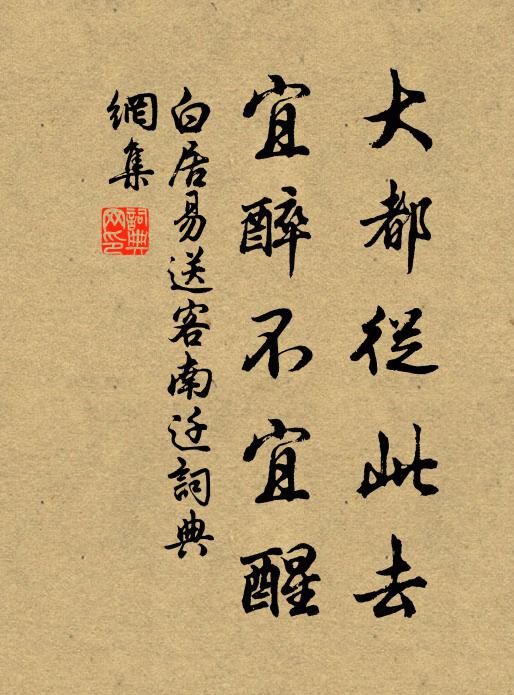 大都從此去
宜醉不宜醒
白居易送客南迁詞典
網集
詞典
网印